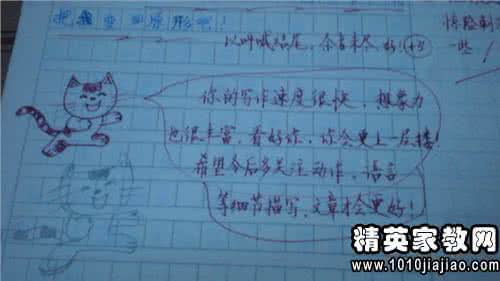 把我变回原形吧！
以叫喊结尾，余音未尽，好！
惊险刺
一些！
你的写作速度很快，想象力
也很丰富，看好你，你会更上一层楼！
希望今后多关注动作、语言
等细节描写，文章才会更好！
精英家教网
www.1010jiajiao.com